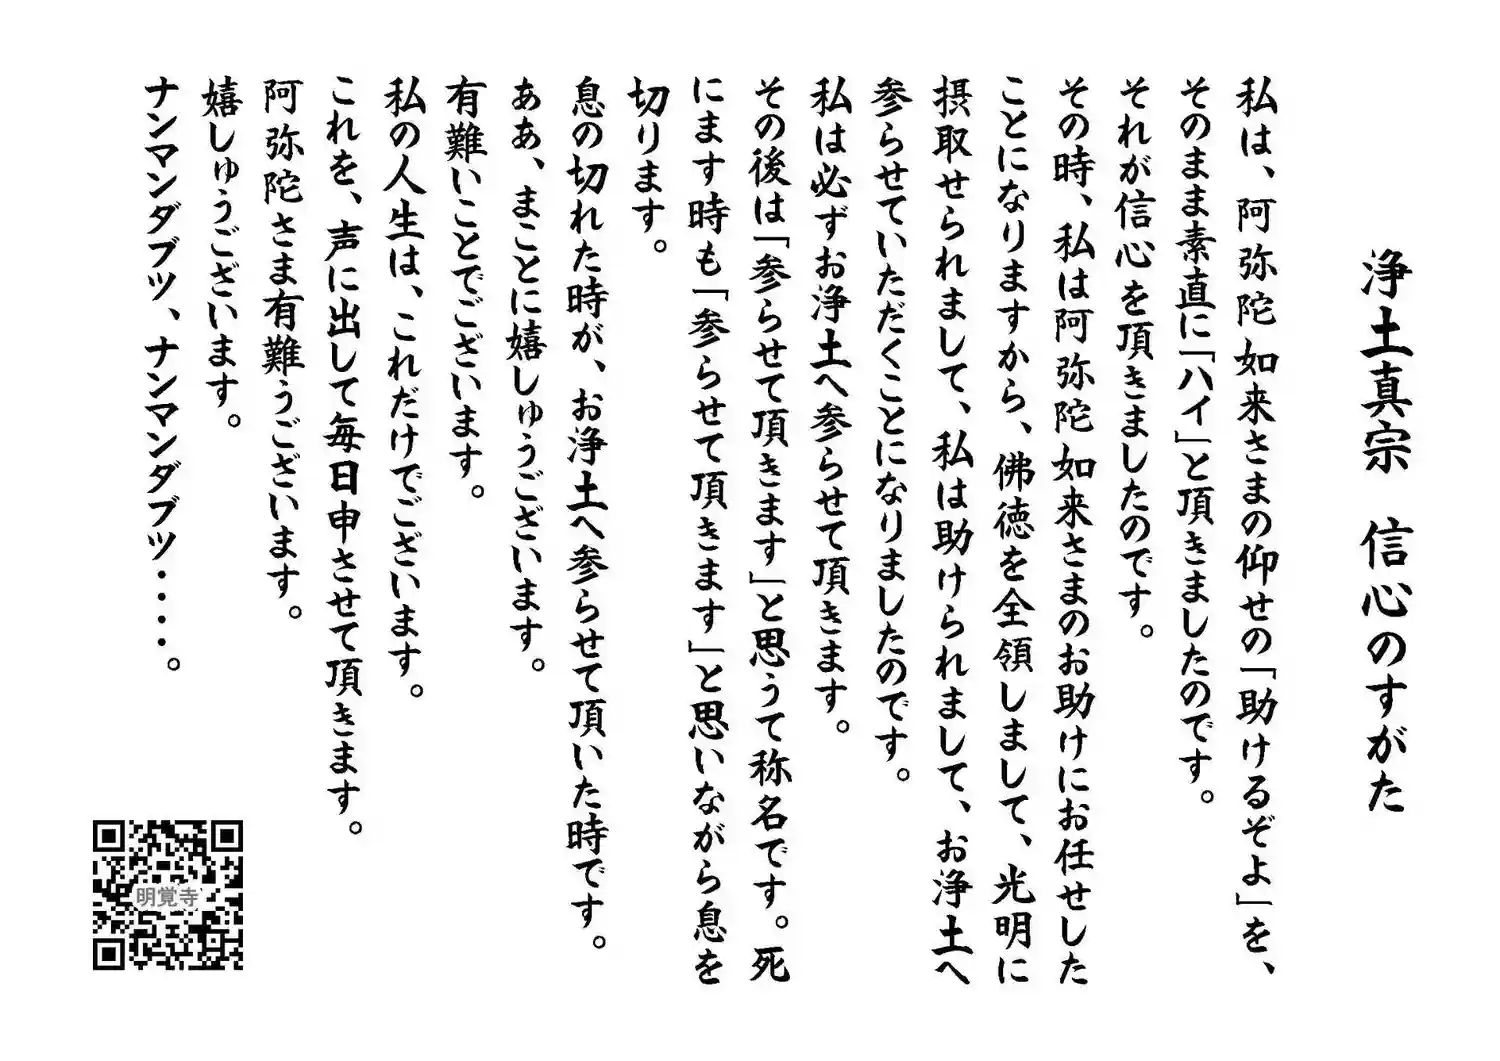 浄土真宗　信心のすがた
私は、阿弥陀如来さまの仰せの「助けるぞよ」を、
そのまま素直に「ハイ」と頂きましたのです。
それが信心を頂きましたのです。
その時、私は阿弥陀如来さまのお助けにお任せした
ことになりますから、佛徳を全領しまして、光明に
摂取せられまして、私は助けられまして、お浄土へ
参らせていただくことになりましたのです。
私は必ずお浄土へ参らせて頂きます。
その後は「参らせて頂きます」と思うて称名です。死
にます時も「参らせて頂きます」と思いながら息を
切ります。
息の切れた時が、お浄土へ参らせて頂いた時です。
ああ、まことに嬉しゅうございます。
有難いことでございます。
私の人生は、これだけでございます。
これを、声に出して毎日申させて頂きます。
阿弥陀さま有難うございます。
嬉しゅうございます。
ナンマンダブツ、ナンマンダブツ・・・・。
明覚寺